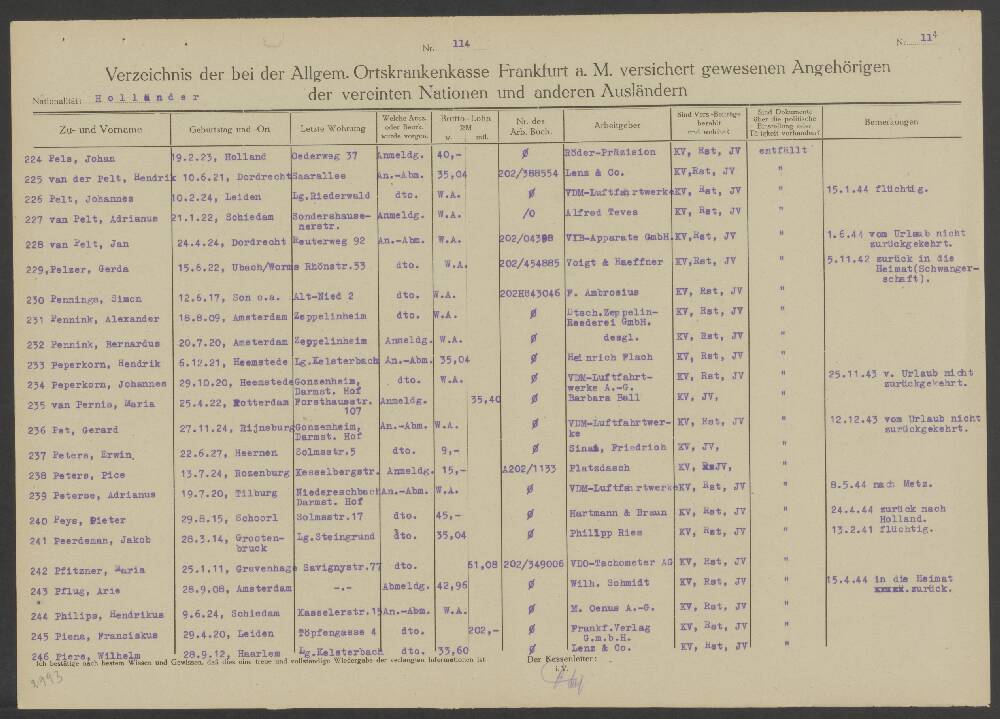 Nr. 114
Nr. 114
Verzeichnis der bei der Allgem. Ortskrankenkasse Frankfurt a. M. versichert gewesenen Angehörigen
Nationalität: Holländer
der vereinten Nationen und anderen Ausländern
Zu- und Vorname Geburtstag und -Ort Letzte Wohnung Welche Anm. oder Besch. wurde vorgen. Brutto-Lohn RM w. mtl. Nr. des Arb. Buch. Arbeitgeber Sind Vers.-Beiträge bezahlt und welche? Sind Dokumente über die politische Einstellung oder Tätigkeit vorhanden? Bemerkungen
224 Pels, Johan 19.2.23, Holland Oederweg 37 Anmeldg. 40,- Ø Röder-Präzision KV, Rst, JV entfällt
225 van der Pelt, Hendrik 10.6.21, Dordrecht Saarallee An.-Abm. 35,04 202/388554 Lenz & Co. KV,Rst, JV "
226 Pelt, Johannes 10.2.24, Leiden Lg.Riederwald dto. W.A. Ø VDM-Luftfahrtwerke KV, Rst, JV " 15.1.44 flüchtig.
227 van Pelt, Adrianus 21.1.22, Schiedam Sondershause- Anmeldg. W.A. /0 Alfred Teves KV, Rst, JV "
nerstr.
228 van Pelt, Jan 24.4.24, Dordrecht Reuterweg 92 An.-Abm. W.A. 202/04398 VIB-Apparate GmbH. KV,Rst, JV " 1.6.44 vom Urlaub nicht
zurückgekehrt.
229,Pelzer, Gerda 15.6.22, Ubach/Worms Rhönstr.53 dto. W.A. 202/454885 Voigt & Haeffner KV,Rst, JV " 5.11.42 zurück in die
Heimat(Schwanger-
schaft).
230 Penninga, Simon 12.6.17, Son o.a. Alt-Nied 2 dto. W.A. 202H843046 F. Ambrosius KV, Rst, JV "
231 Pennink, Alexander 18.8.09, Amsterdam Zeppelinheim dto. W.A. Ø Dtsch.Zeppelin- KV, Rst, JV "
Reederei GmbH.
232 Pennink, Bernardus 20.7.20, Amsterdam Zeppelinheim Anmeldg. W.A. Ø desgl. KV, Rst, JV "
233 Peperkorn, Hendrik 6.12.21, Heemstede Lg.Kelsterbach An.-Abm. 35,04 Ø Heinrich Flach KV, Rst, JV "
234 Peperkorn, Johannes 29.10.20, Heemstede Gonzenheim, dto. W.A. Ø VDM-Luftfahrt- KV, Rst, JV " 25.11.43 v. Urlaub nicht
Darmst. Hof werke A.-G. zurückgekehrt.
235 van Pernis, Maria 25.4.22, Rotterdam Forsthausstr. Anmeldg. 35,40 Ø Barbara Ball KV, JV, "
107
236 Pet, Gerard 27.11.24, Rijnsburg Gonzenheim, An.-Abm. W.A. Ø VDM-Luftfahrtwer- KV, Rst, JV " 12.12.43 vom Urlaub nicht
Darmst. Hof ke zurückgekehrt.
237 Peters, Erwin, 22.6.27, Heernen Solmsstr.5 dto. 9,- Ø Friedrich KV, JV, "
238 Peters, Pice 13.7.24, Rozenburg Kesselbergstr. Anmeldg. 15,- A202/1133 Platzdasch KV, JV, "
239 Peterse, Adrianus 19.7.20, Tilburg Niedereschbach An.-Abm. W.A. Ø VDM-Luftfahrtwerke KV, Rst, JV " 8.5.44 nach Metz.
Darmst. Hof
240 Peys, Pieter 29.8.15, Schoorl Solmsstr.17 dto. 45,- Ø Hartmann & Braun KV, Rst, JV " 24.4.44 zurück nach
Holland.
241 Peerdeman, Jakob 28.3.14, Grooten- Lg.Steingrund dto. 35,04 Ø Philipp Ries KV, Rst, JV " 13.2.41 flüchtig.
bruck
242 Pfitzner, Maria 25.1.11, Gravenhage Savignystr.77 dto. 61,08 202/349006 VDO-Tachometer AG KV, Rst, JV "
243 Pflug, Arie 28.9.08, Amsterdam -.- Abmeldg. 42,96 Ø Wilh. Schmidt KV, Rst, JV " 15.4.44 in die Heimat
xxxxx.zurück.
244 Philips, Hendrikus 9.6.24, Schiedam Kasselerstr.15 An.-Abm. W.A. Ø M. Cenus A.-G. KV, Rst, JV "
245 Piena, Franciskus 29.4.20, Leiden Töpfengasse 4 dto. 202,- Ø Frankf.Verlag KV, Rst, JV "
G.m.b.H.
246 Piers, Wilhelm 28.9.12, Haarlem Lg.Kelsterbach dto. 33,60 Ø Lenz & Co. KV, Rst, JV "
Ich bestätige nach bestem Wissen und Gewissen, daß dies eine treue und vollständige Wiedergabe der verlangten Informationen ist Der Kassenleiter:
i.V.
2993